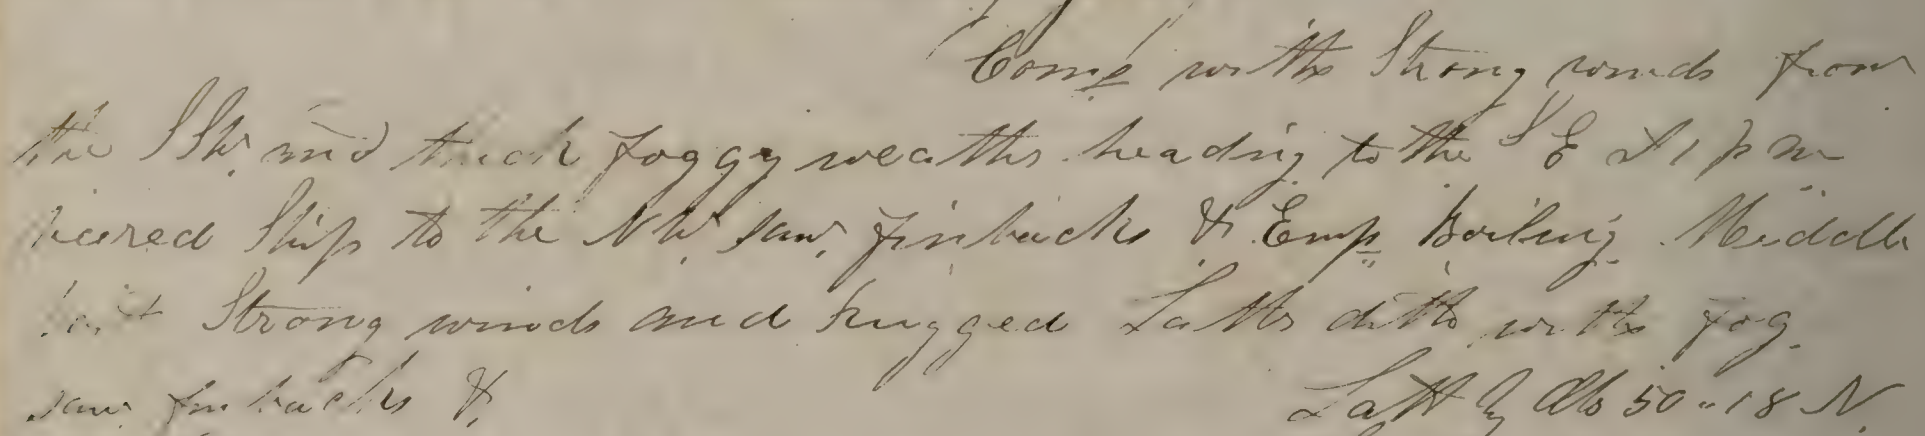 Come with Strong winds from
the SSW and thick foggy weather heading to the SE At 1 P M
weared Ship to the NW, saw finbacks & Emp Boiling. Middle
part Strong winds and rugged Latter ditto with fog.
saw finbacks &,
Latt by Ob 50 " 18 N.